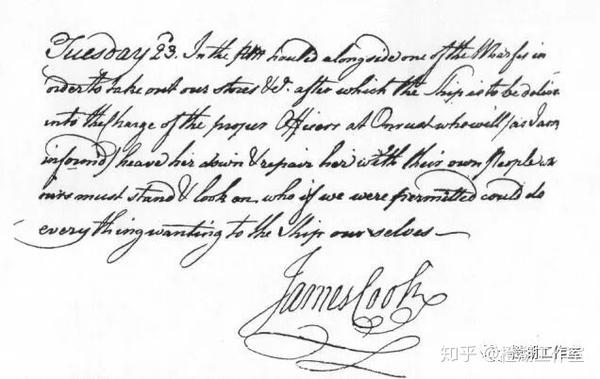 Tuesday 23. In the PM hauld alongside one of the Warfes in
order to take out our stores &ca. after which the Ship is to be deliver
into the Charge of the proper Officers at Onrust who will (as I am
inform'd) heave her down & repair her with their own People
ours must stand & look on, who if we were permitted could do
every thing wanting to the Ship our selves—
James Cook
知乎 @橙湖工作室